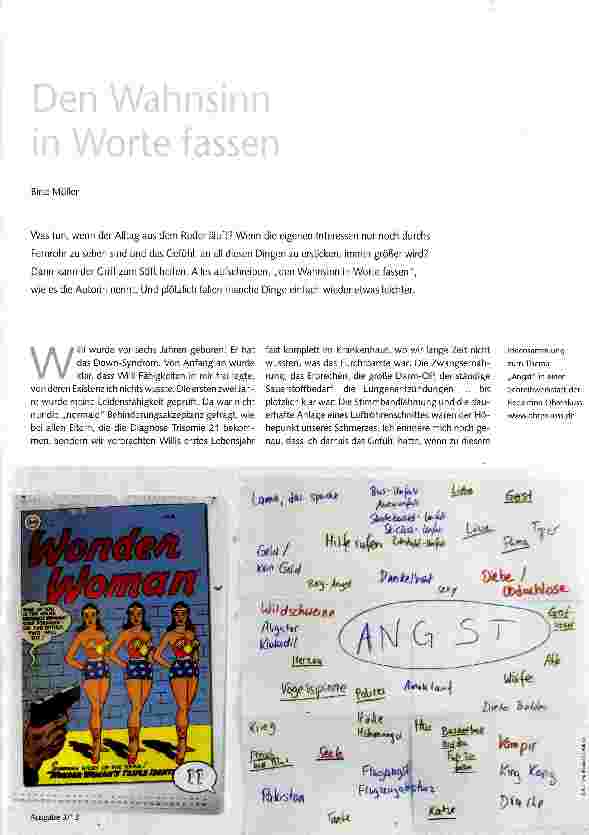 Den Wahnsinn
in Worte fassen
Birte Müller
Was tun, wenn der Alltag aus dem Ruder läuft? Wenn die eigenen Interessen nur noch durchs
Fernrohr zu sehen sind und das Gefühl, an all diesen Dingen zu ersticken, immer größer wird?
Dann kann der Griff zum Stift helfen. Alles aufschreiben, „den Wahnsinn in Worte fassen“,
wie es die Autorin nennt. Und plötzlich fallen manche Dinge einfach wieder etwas leichter.
Willi wurde vor sechs Jahren geboren. Er hat
das Down-Syndrom. Von Anfang an wurde
klar, dass Willi Fähigkeiten in mir frei legte,
von deren Existenz ich nichts wusste. Die ersten zwei Jah-
re wurde meine Leidensfähigkeit geprüft. Da war nicht
nur die „normale“ Behinderungsakzeptanz gefragt, wie
bei allen Eltern, die die Diagnose Trisomie 21 bekom-
men, sondern wir verbrachten Willis erstes Lebensjahr
fast komplett im Krankenhaus, wo wir lange Zeit nicht
wussten, was das Furchtbarste war. Die Zwangsernäh-
rung, das Erbrechen, die große Darm-OP, der ständige
Sauerstoffbedarf, die Lungenentzündungen ... bis
plötzlich klar war: Die Stimmbandlähmung und die dau-
erhafte Anlage eines Luftröhrenschnittes waren der Hö-
hepunkt unseres Schmerzes. Ich erinnere mich noch ge-
nau, dass ich damals das Gefühl hatte, wenn zu diesem
Ideensammlung
zum Thema
„Angst“ in einer
Schreibwerkstatt der
Redaktion Ohrenkuss
www.ohrenkuss.de
Wonder
Woman
WONDER WOMAN'S TRIPLE IDENTITY
Lama, das spuckt
Bus-Unfall
Autounfall
Liebe
Geist
Löwe
Tiger
Hilfe rufen
Geld /
kein Geld
Dunkelheit
sexy
Diebe /
Obdachlose
Wildschweine
Alligator
Krokodil
ANGST
Gott
Herzog
Affe
Vogelspinne
Polizei
Amoklauf
Waffe
Krieg
Höhe
Seele
Vampir
King Kong
Flugangst
Flugzeugabsturz
Pakistan
Tante
Katze
Drache